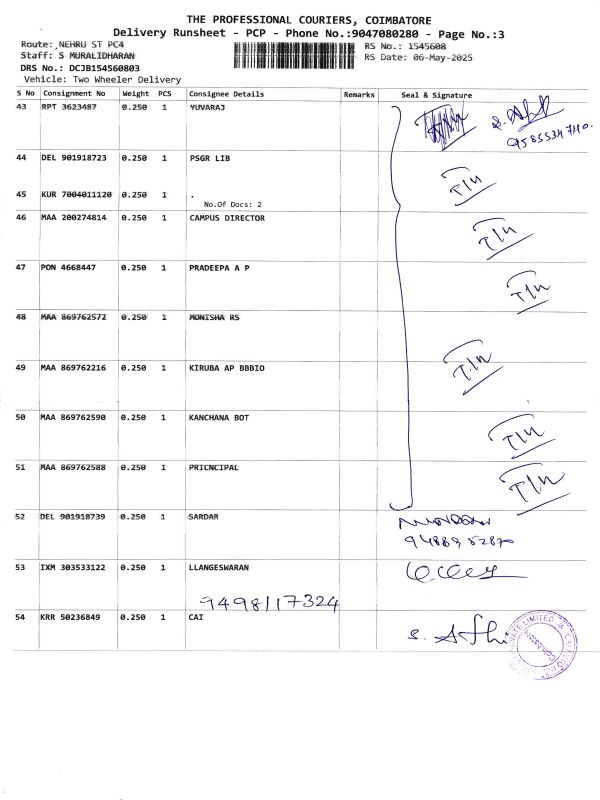 THE PROFESSIONAL COURIERS, COIMBATORE
Delivery Runsheet - PCP - Phone No.:9047080280 - Page No.:3
Route: NEHRU ST PC4 RS No.: 1545608
Staff: S MURALIDHARAN RS Date: 06-May-2025
DRS No.: DCJB154560803
Vehicle: Two Wheeler Delivery
S No Consignment No Weight PCS Consignee Details Remarks Seal & Signature
43 RPT 3623487 0.250 1 YUVARAJ
44 DEL 901918723 0.250 1 PSGR LIB
45 KUR 7004011120 0.250 1 .
No.Of Docs: 2
46 MAA 200274814 0.250 1 CAMPUS DIRECTOR
47 PON 4668447 0.250 1 PRADEEPA A P
48 MAA 869762572 0.250 1 MONISHA RS
49 MAA 869762216 0.250 1 KIRUBA AP BBBIO
50 MAA 869762590 0.250 1 KANCHANA BOT
51 MAA 869762588 0.250 1 PRICNCIPAL
52 DEL 901918739 0.250 1 SARDAR
53 IXM 303533122 0.250 1 LLANGESWARAN
9498117324
54 KRR 50236849 0.250 1 CAI